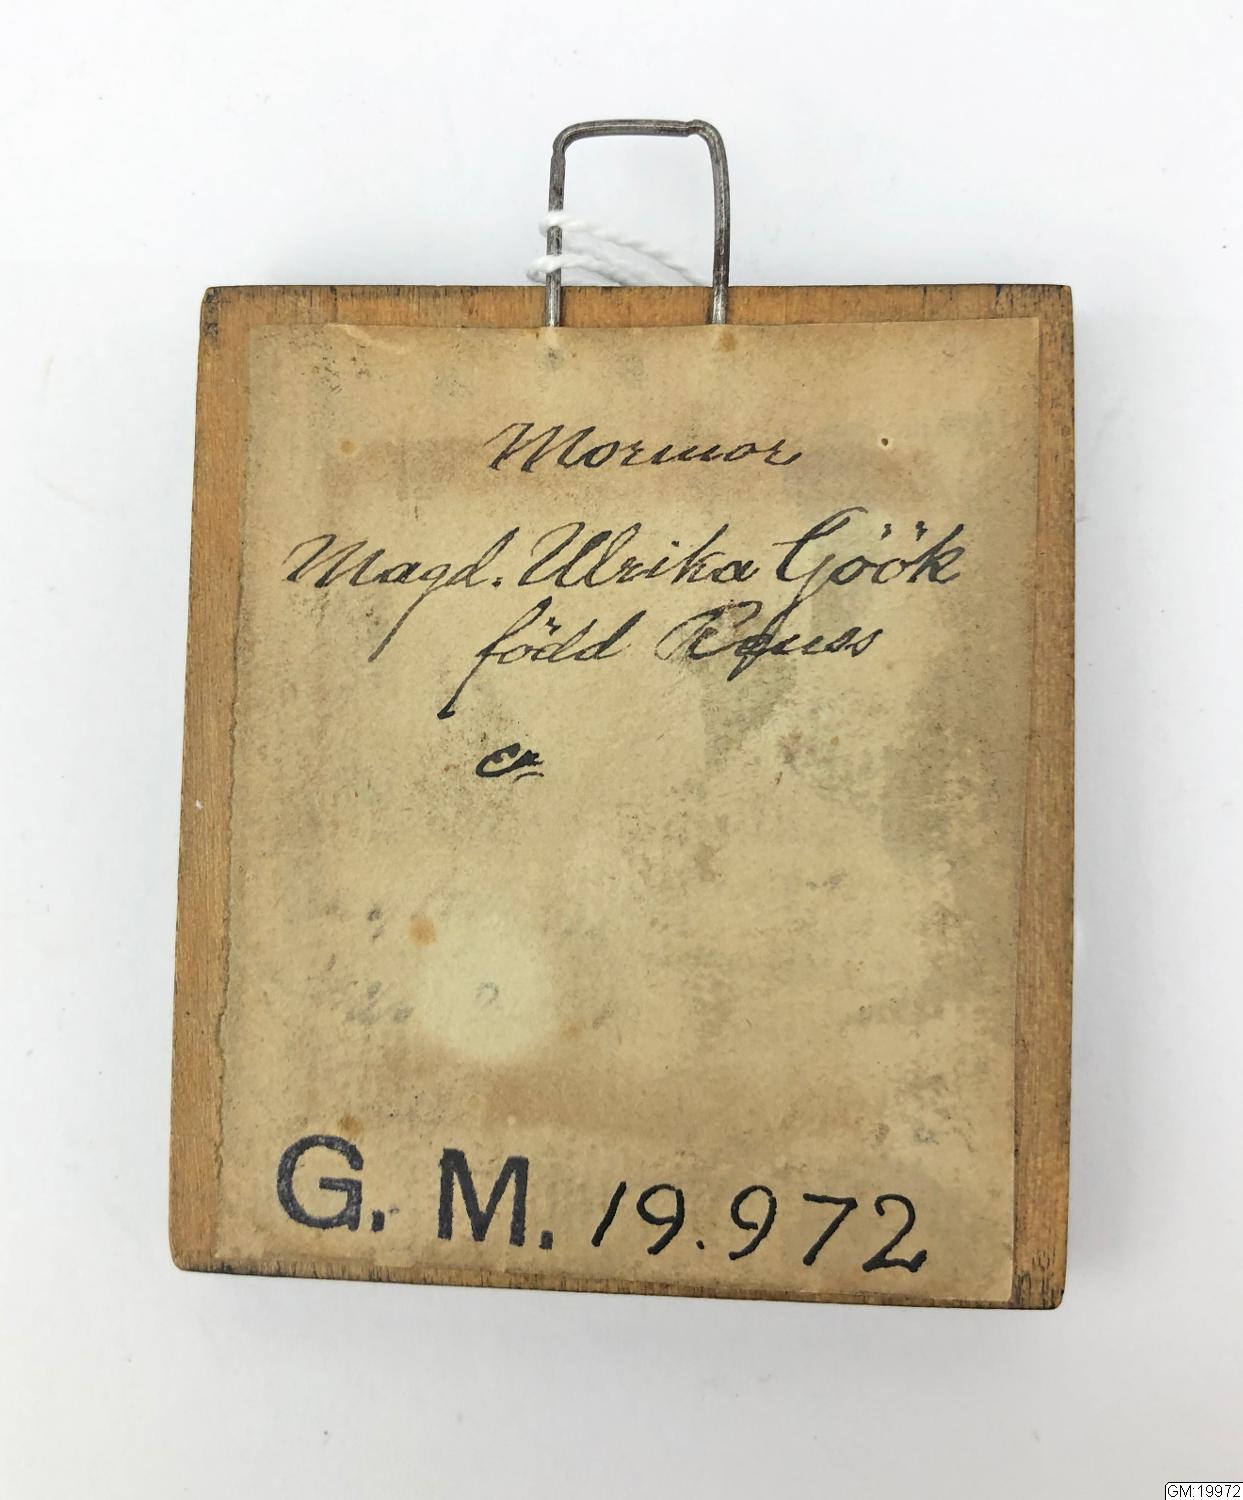 Mormor
Magd. Ulrika Göök
född
G. M. 19.972
GM:19972